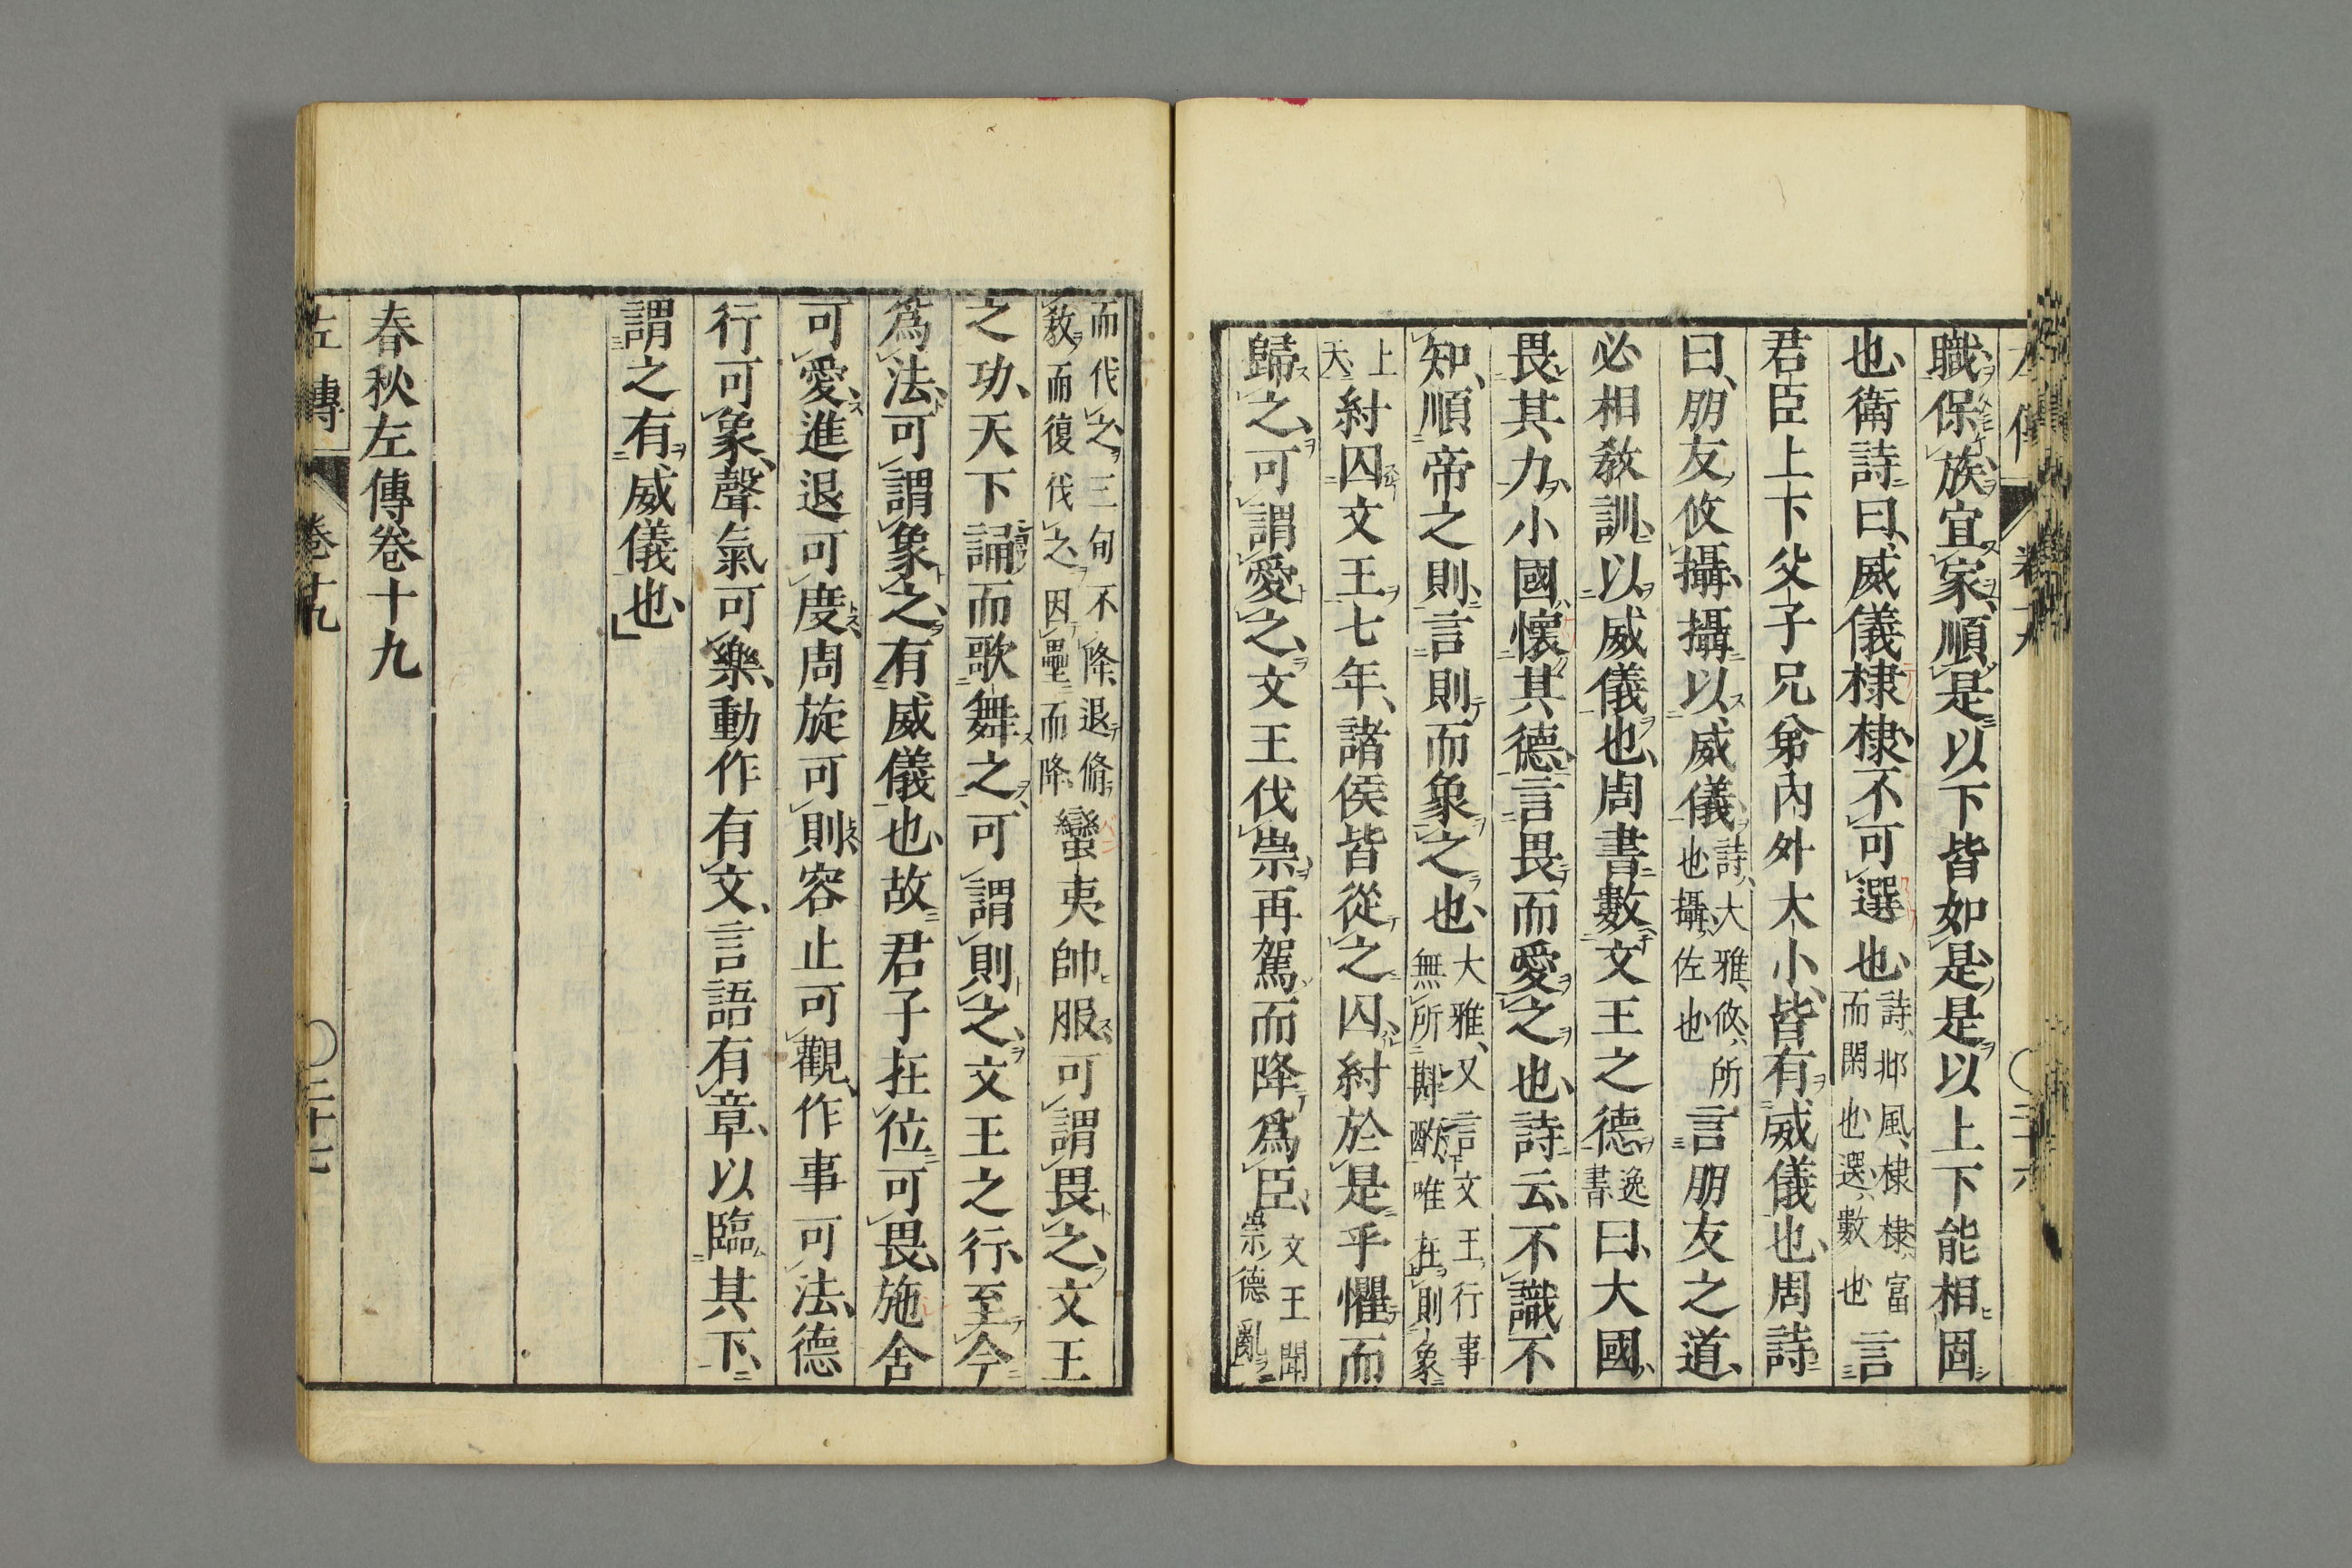 職保族宜家順是以下皆如是是以上下能相固
也衛詩曰威儀棣棣不可選也詩邶風棣棣富而閑也選數也言
君臣上下父子兄弟內外大小皆有威儀也周詩
曰朋友攸攝攝以威儀詩大雅攸所也攝佐也言朋友之道
必相敎訓以威儀也周書數文王之德逸書曰大國
畏其力小國懷其德言畏而愛之也詩云不識不
知順帝之則言則而象之也大雅又言文王行事無所斟酌唯在則象
上天紂囚文王七年諸侯皆從之囚紂於是乎懼而
歸之可謂愛之文王伐崇再駕而降爲臣文王聞崇德亂
而伐之三旬不降退脩敎而復伐之因壘而降蠻夷帥服可謂畏之文王
之功天下誦而歌舞之可謂則之文王之行至今
爲法可謂象之有威儀也故君子在位可畏施舍
可愛進退可度周旋可則容止可觀作事可法德
行可象聲氣可樂動作有文言語有章以臨其下
謂之有威儀也
春秋左傳卷十九
左傳 卷十九 二十七